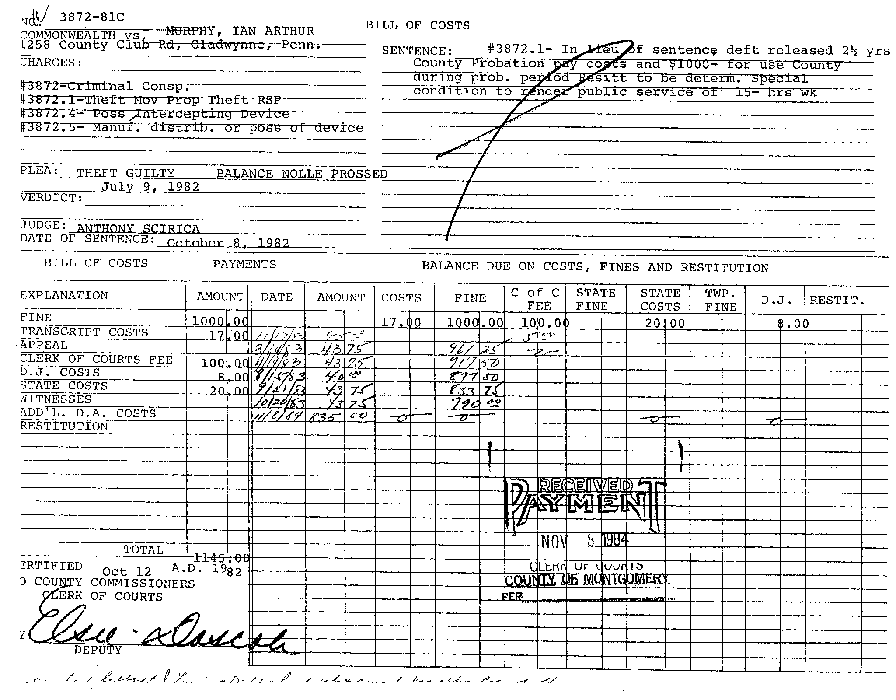 3872-81C
COMMONWEALTH vs. MURPHY, IAN ARTHUR
1258 County Club Rd, Gladwynne, Penn.
CHARGES:
#3872-Criminal Consp.
#3872.1-Theft Mov Prop Theft RSP
#3872.4- Poss Intercepting Device
#3872.5- Manuf. distrib. or poss of device
PLEA: THEFT GUILTY BALANCE NOLLE PROSSED
July 9, 1982
VERDICT:
JUDGE: ANTHONY SCIRICA
DATE OF SENTENCE: October 8, 1982
BILL OF COSTS
SENTENCE: #3872.1- In lieu of sentence deft released 2½ yrs
County Probation pay costs and $1000- for use County
during prob. period Restit to be determ. Special
condition to render public service of 15- hrs wk
BILL OF COSTS PAYMENTS BALANCE DUE ON COSTS, FINES AND RESTITUTION
EXPLANATION AMOUNT DATE AMOUNT COSTS FINE C of C FEE STATE FINE STATE COSTS TWP. FINE D.J. RESTIT.
FINE 1000.00 17.00 1000.00 100.00 20.00 8.00
TRANSCRIPT COSTS 17.00
APPEAL 43 75 961 25
CLERK OF COURTS FEE 100.00 43 75 917 50
D.J. COSTS 8.00 8/15/83 40 00 877 50
STATE COSTS 20.00 43 75 833 75
WITNESSES 10/20/83 43 75 790 00
ADD'L. D.A. COSTS 835 00
RESTITUTION
RECEIVED
PAYMENT
NOV 1984
CLERK OF COURTS
COUNTY OF MONTGOMERY
PER
TOTAL 1145.00
CERTIFIED Oct 12 A.D. 1982
O COUNTY COMMISSIONERS
CLERK OF COURTS
DEPUTY